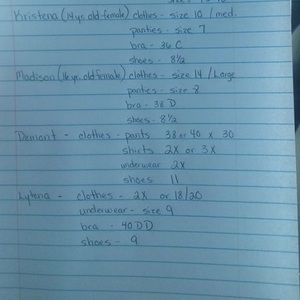 Kristena (14 yr. old female) clothes - size 10 / med.
panties - size 7
bra - 36 C
shoes - 8½
Madison (16 yr. old female) clothes - size 14 / Large
panties - size 8
bra - 38 D
shoes - 8½
Demont - clothes - pants 38 or 40 x 30
shirts 2X or 3X
underwear 2X
shoes 11
- clothes - 2X or 18/20
underwear - size 9
bra - 40 DD
shoes - 9